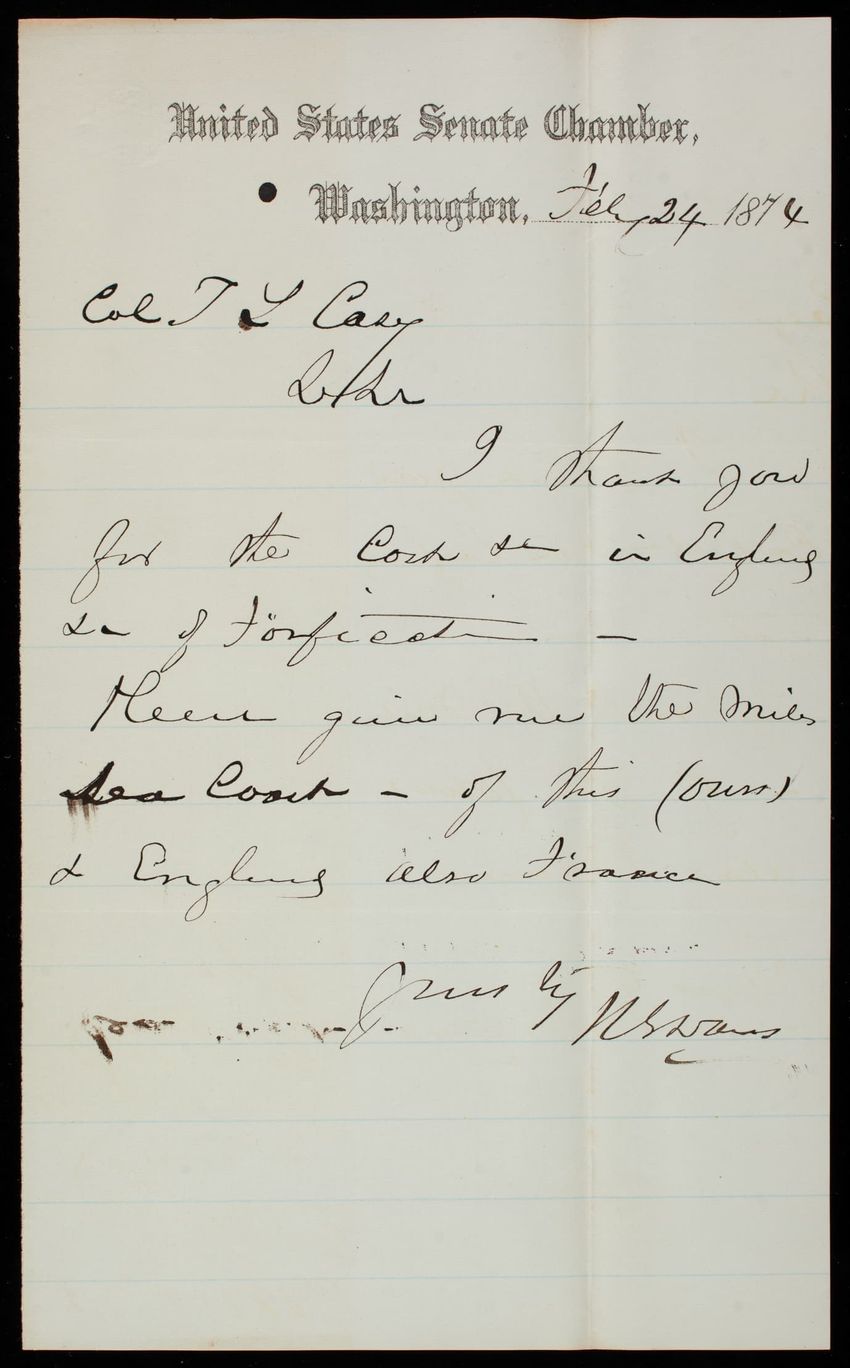 United States Senate Chamber,
Washington, Feby 24 1874
Col T L Casey
Dr Sir
I thank you
for the Cost &c in England
&c of Forfication —
Please give me the miles
Sea Coast – of this (ours)
& England also France
Yrs ty